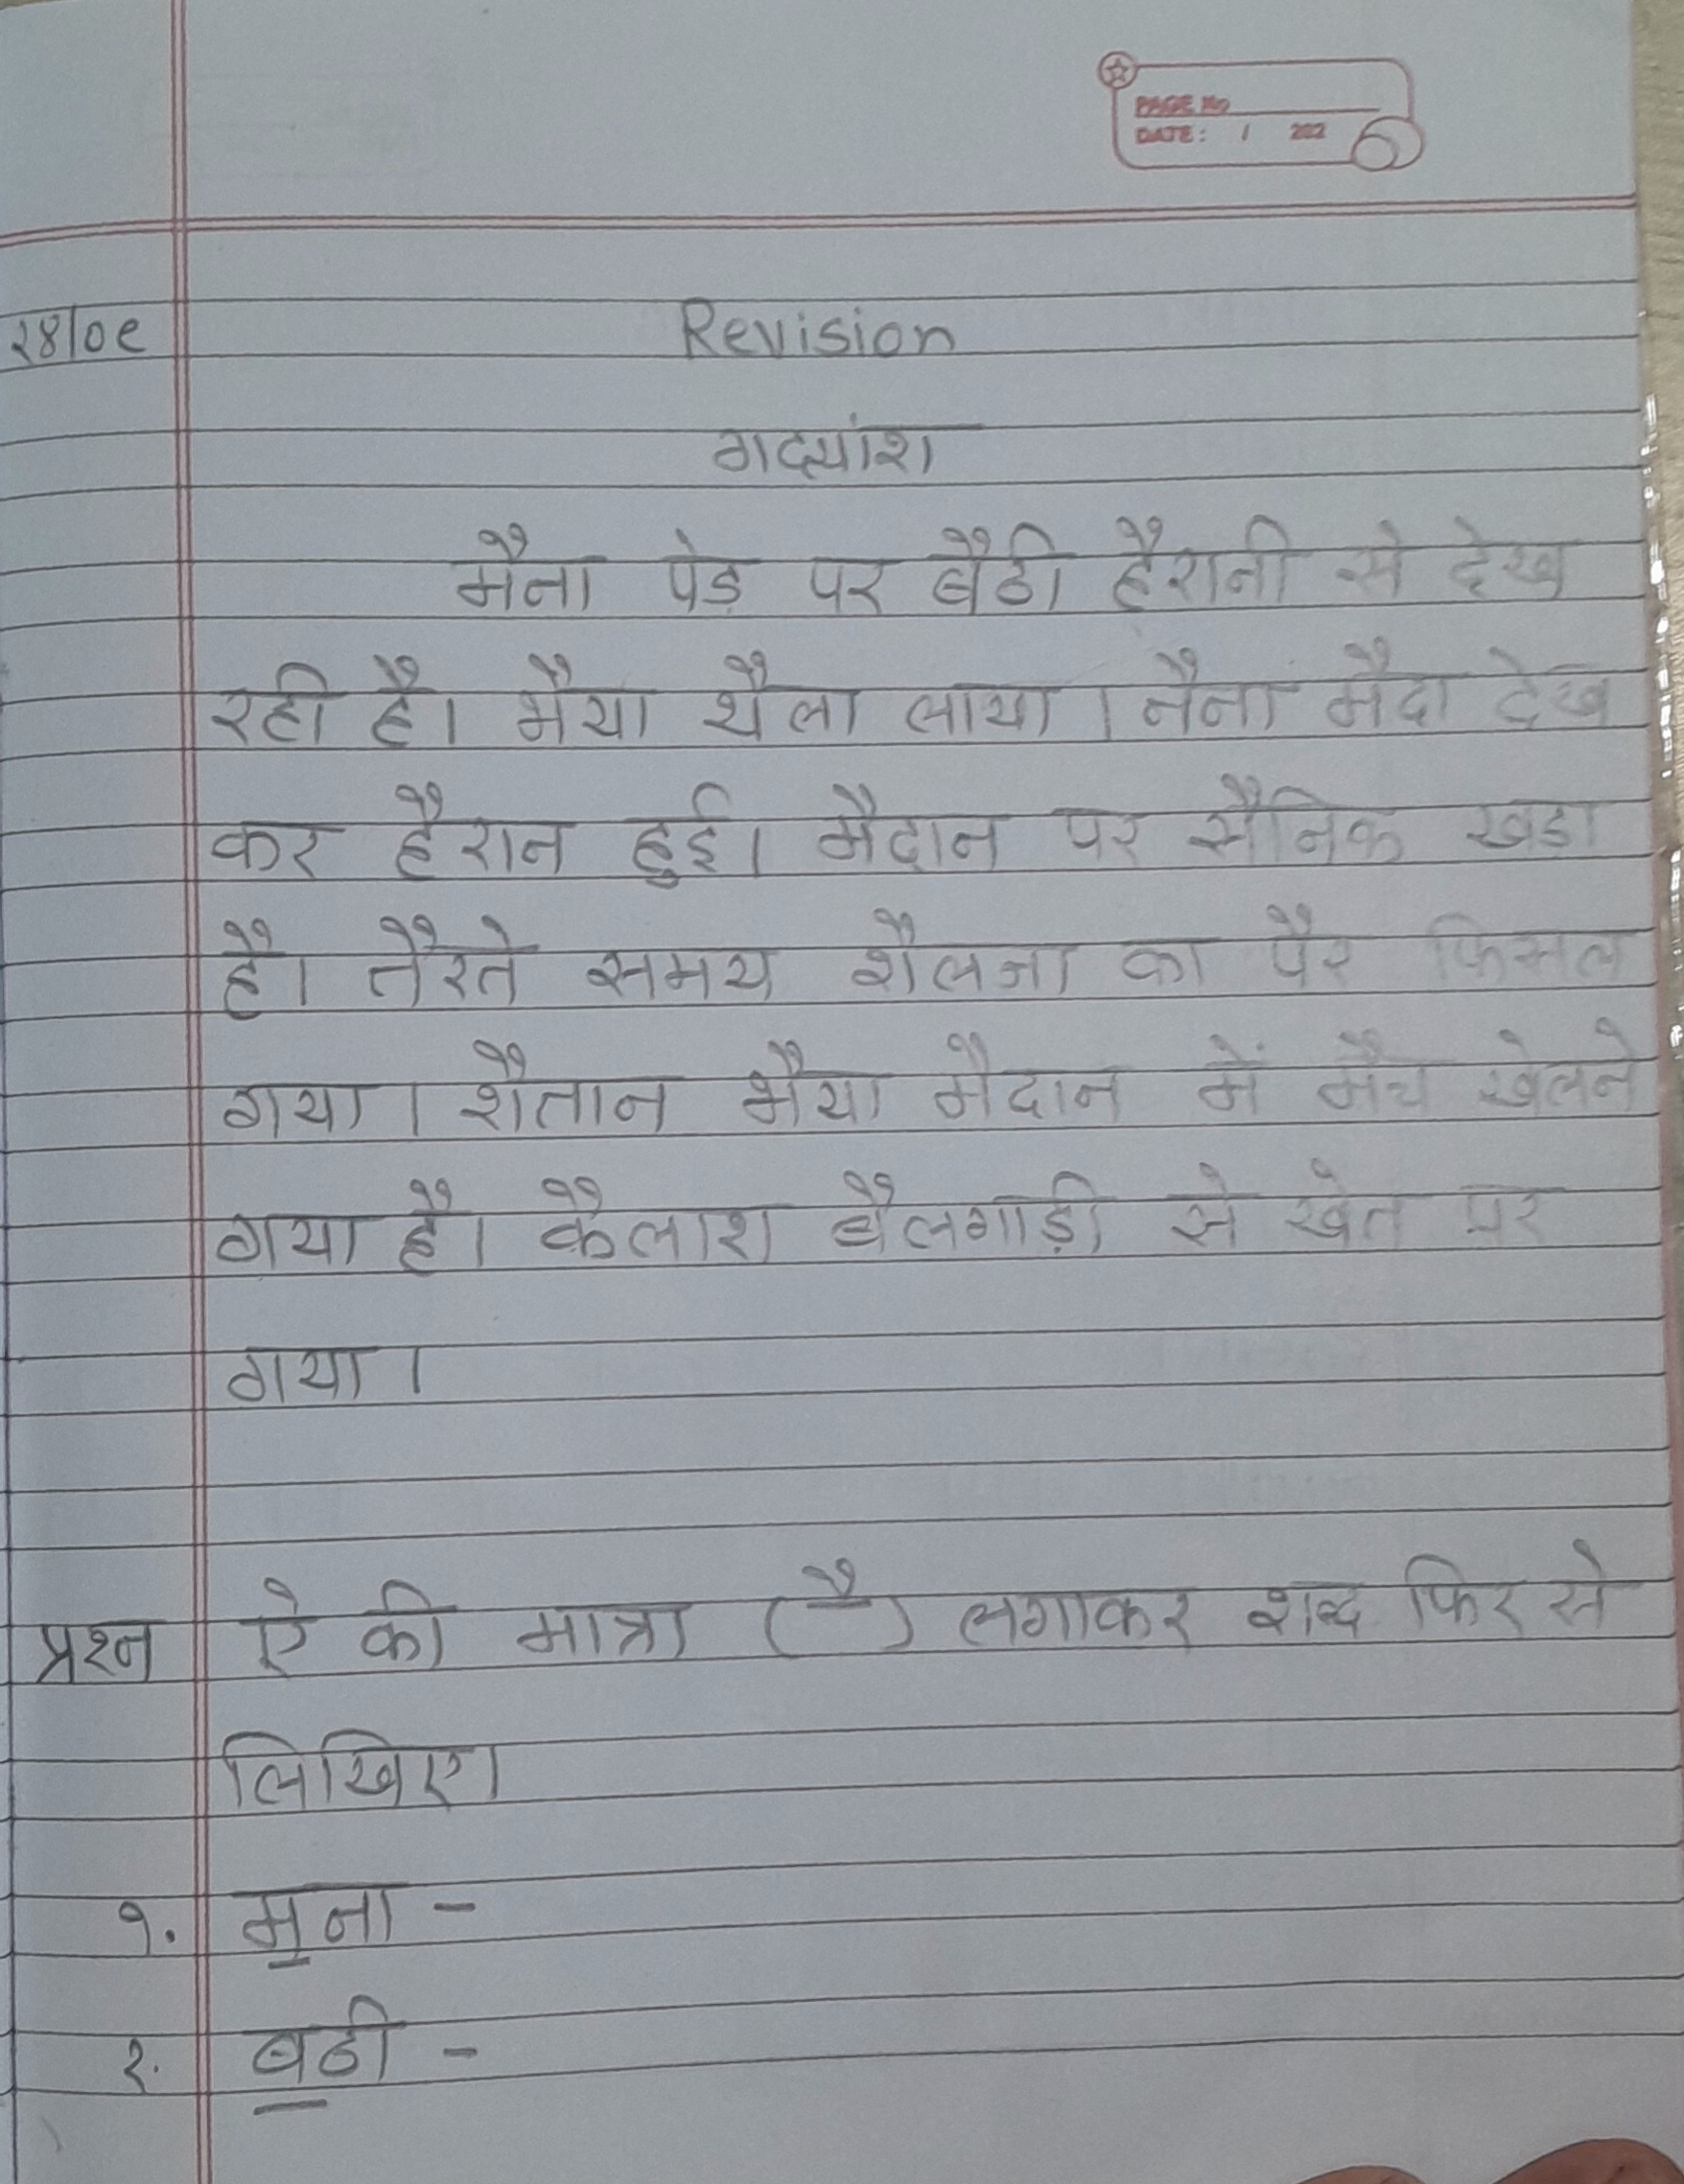 PAGE No
DATE: / 202
२४/०९ Revision
गद्यांश
मैना पेड़ पर बैठी हैरानी से देख
रही है। भैया थैला लाया । नैना मैदा देख
कर हैरान हुई। मैदान पर सैनिक खडा
है। तैरते समय शैलजा का पैर फिसल
गया । शैतान भैया मैदान में मैच खेलने
गया है। कैलाश बैलगाड़ी से खेत पर
गया ।
प्रश्न ऐ की मात्रा (ै) लगाकर शब्द फिर से
लिखिए।
१. मना -
२. बठी -